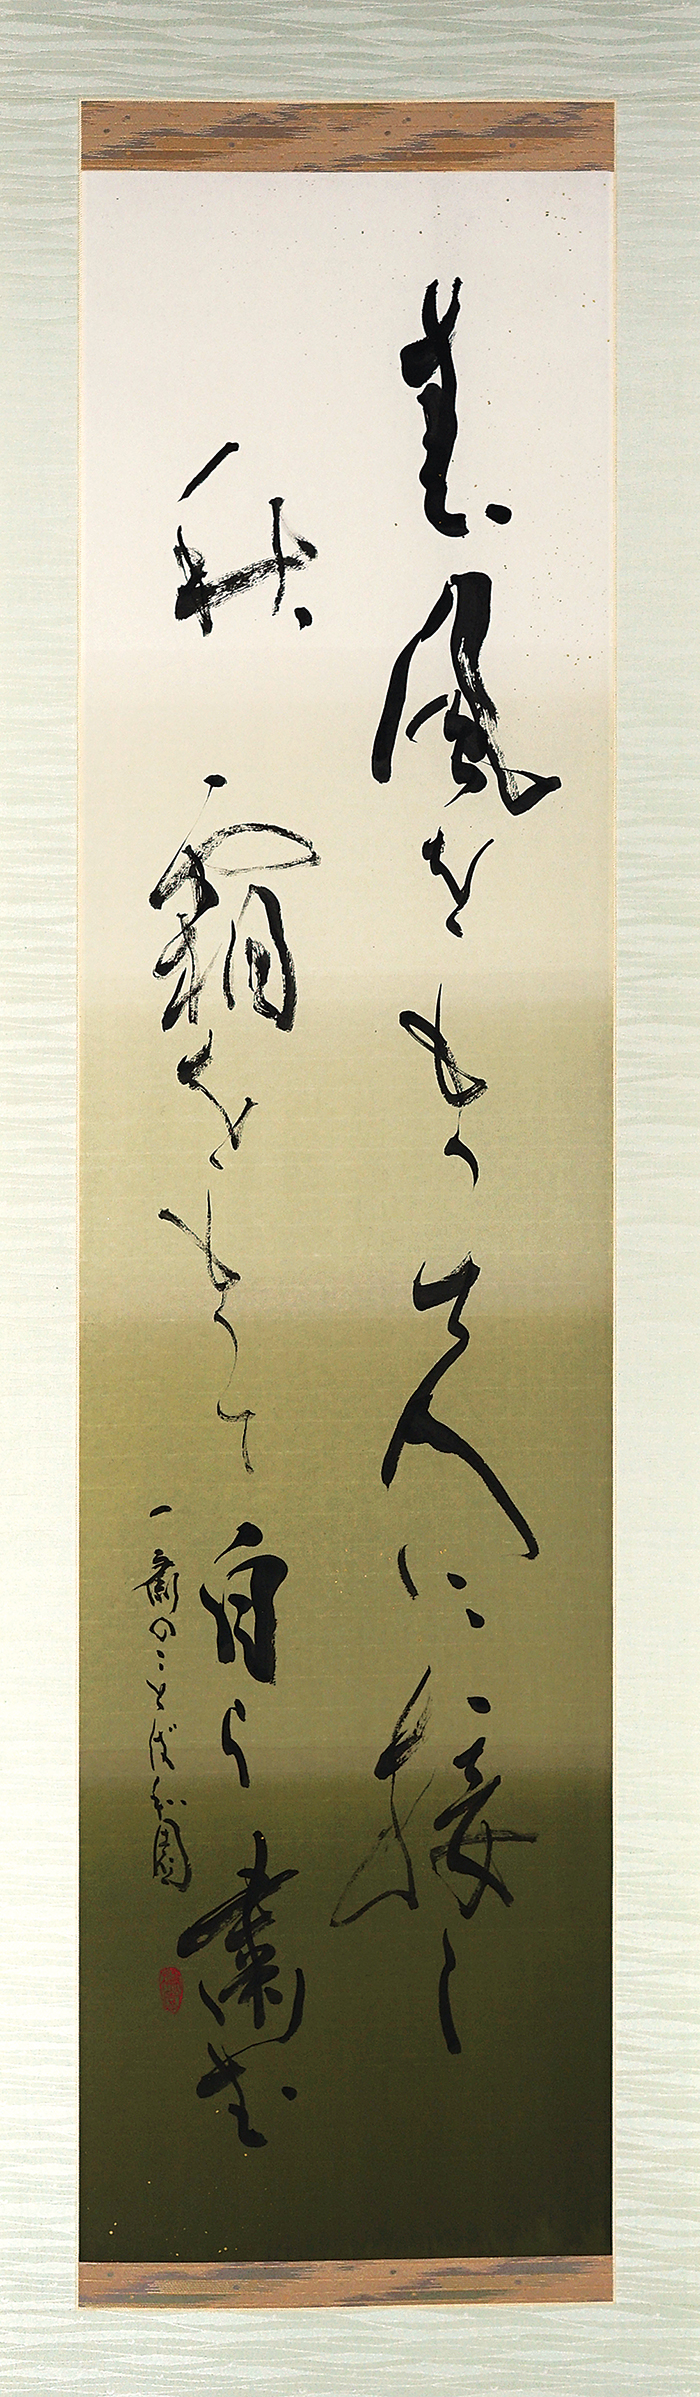 春風をもつて人に接し
秋霜をもつて自ら粛む
一齋のことば